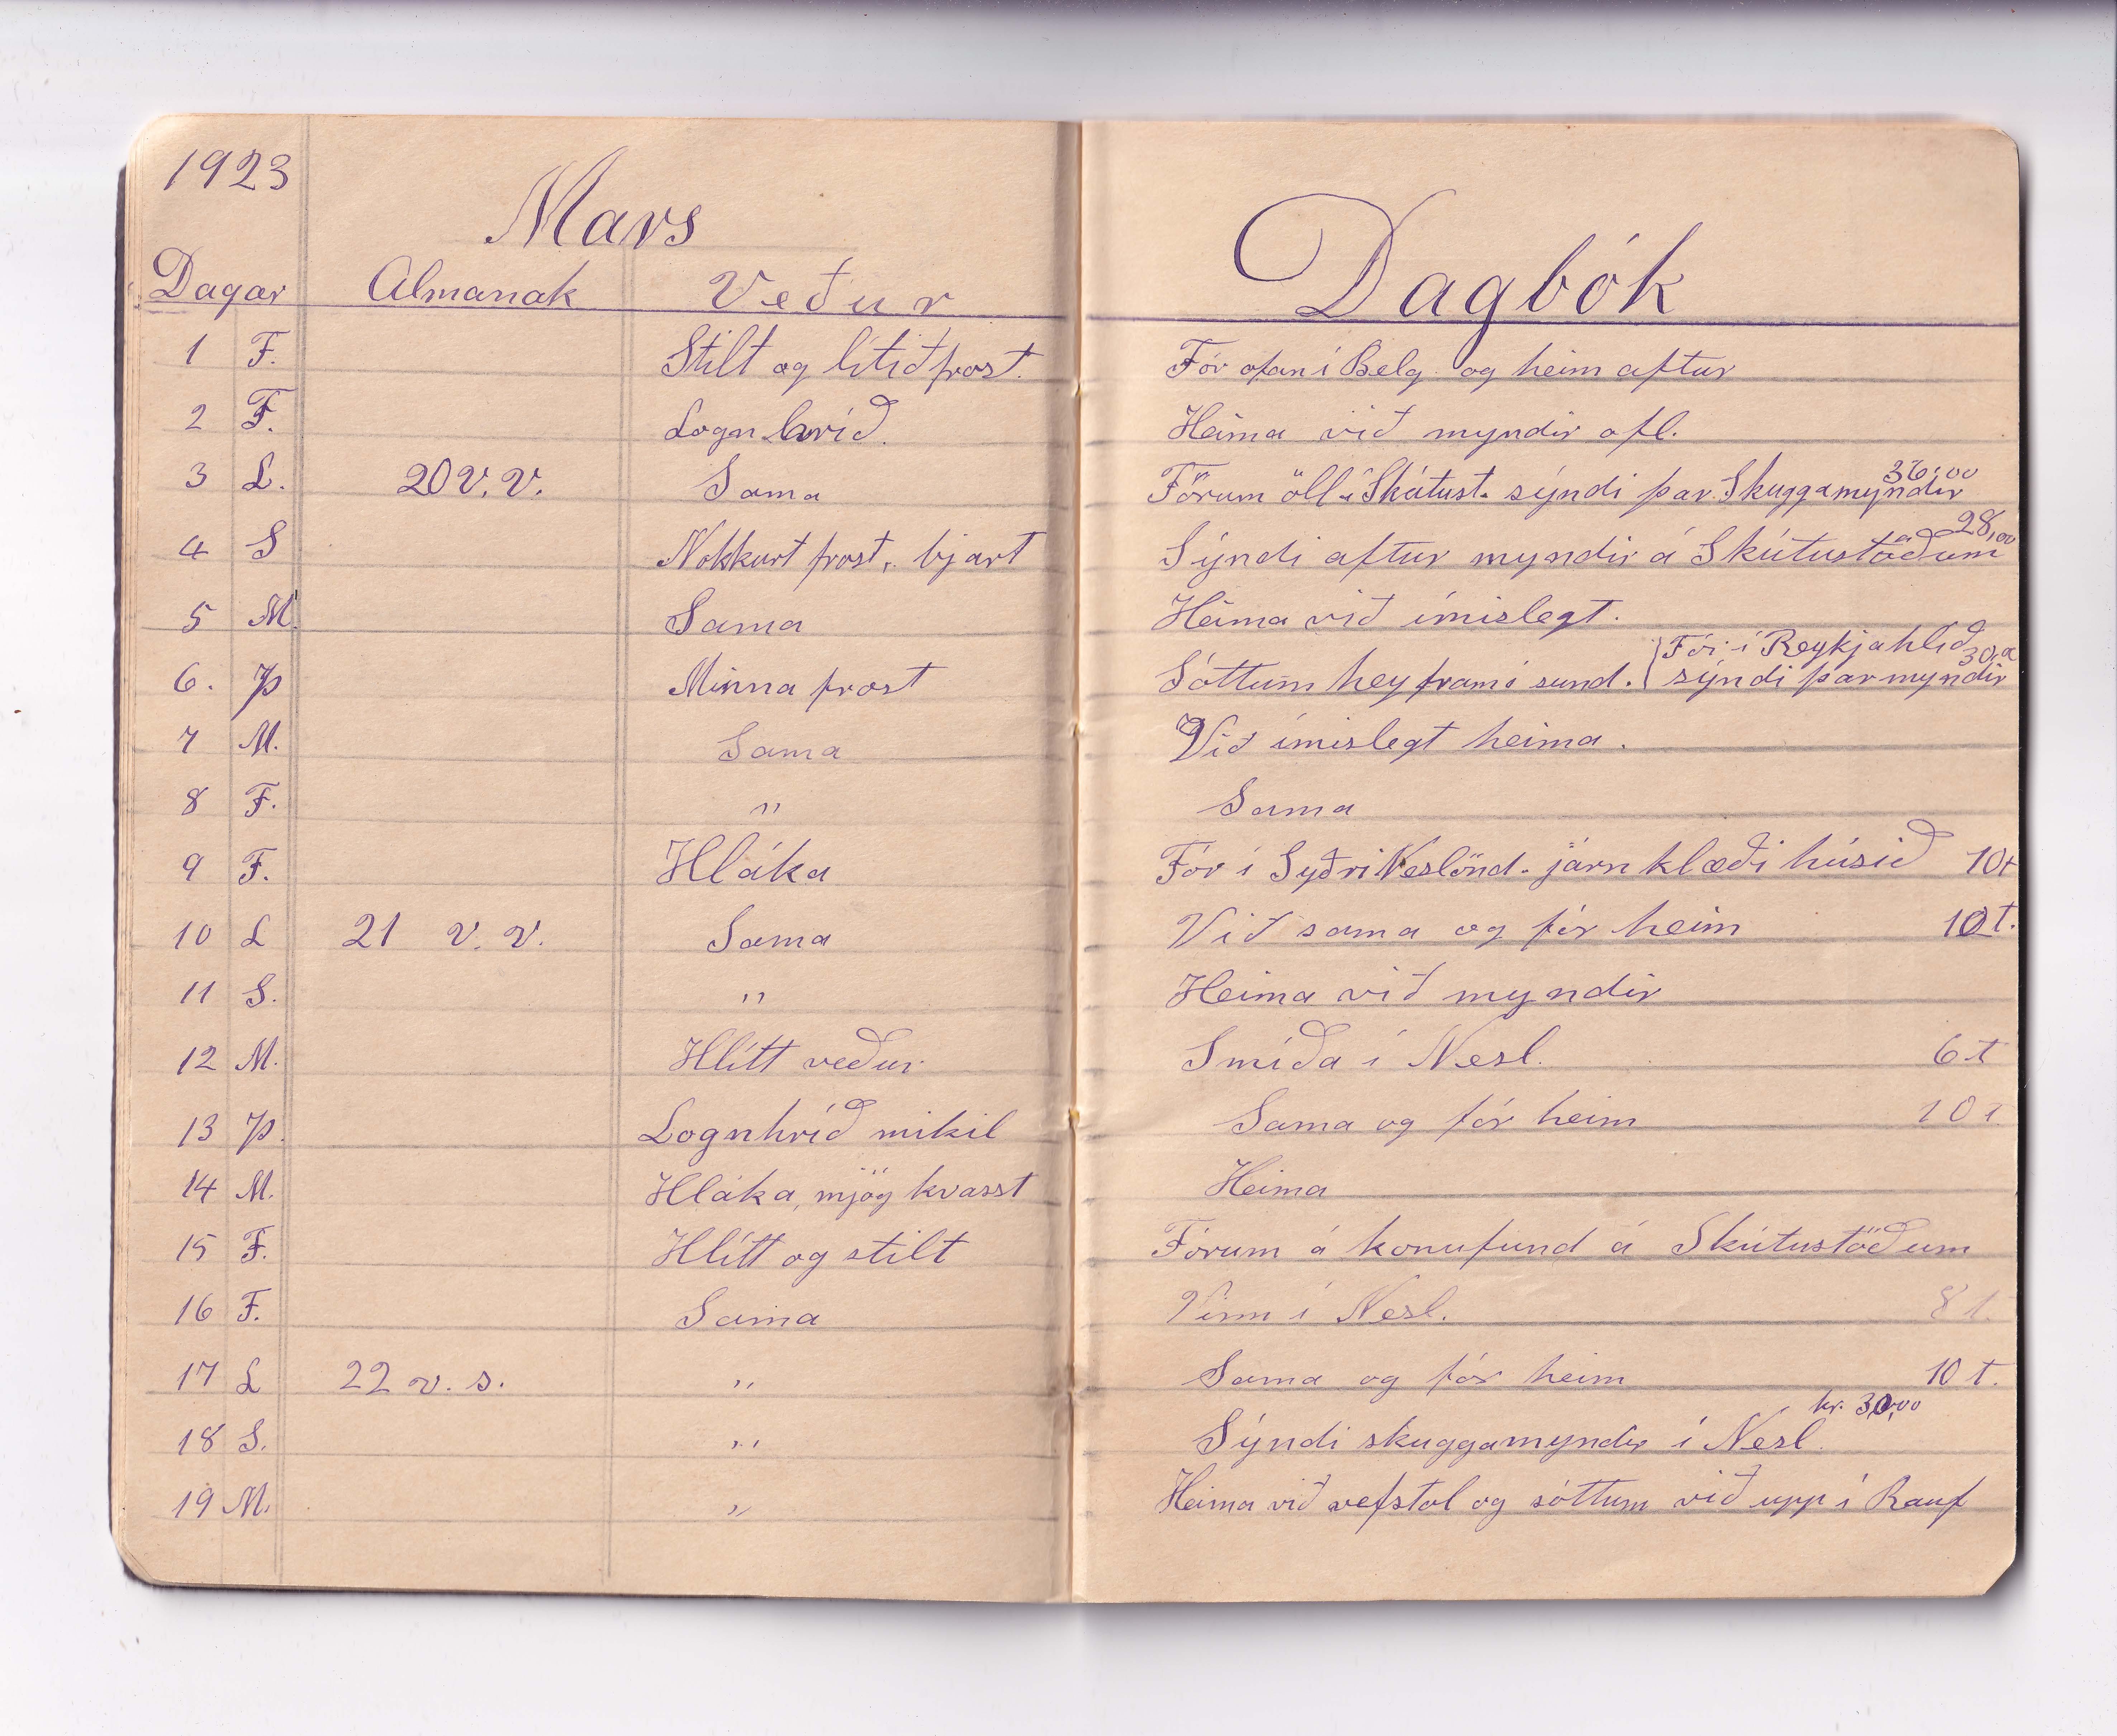 1923
Mars
Dagar Almanak Veður Dagbók
1 F. Stilt og lítið frost. Fór ofan í Belg og heim aftur
2 F. Lognhríð. Heima við myndir ofl.
3 L. 20 V. V. Sama Förum öll í Skútust. sýndi þar Skuggamyndir 36,00
4 S Nokkurt frost, bjart Sýndi aftur myndir á Skútustöðum 28,00
5 M. Sama Heima við ímislegt.
6. Þ Minna frost Sóttum hey fram í sund. Fór í Reykjahlíð
sýndi þar myndir
7 M. Sama Við ímislegt heima.
8 F. " Sama
9 F. Hláka Fór í Syðri Neslönd. járnklæði húsið 10t
10 L 21 V. V. Sama Við sama og fór heim 10 t.
11 S. " Heima við myndir
12 M. Hlítt veður Smíða í Nesl. 6 t
13 Þ. Lognhríð mikil Sama og fór heim 10 t.
14 M. Hláka, mjög kvasst Heima
15 F. Hlítt og stilt Fórum á konufund á Skútustöðum
16 F. Sama Vinn í Nesl. 8 t.
17 L 22 v. s. " Sama og fór heim 10 t.
18 S. " Sýndi skuggamyndir í Nesl. kr. 30,00
19 M. " Heima við vefstól og sóttum við upp í Rauf